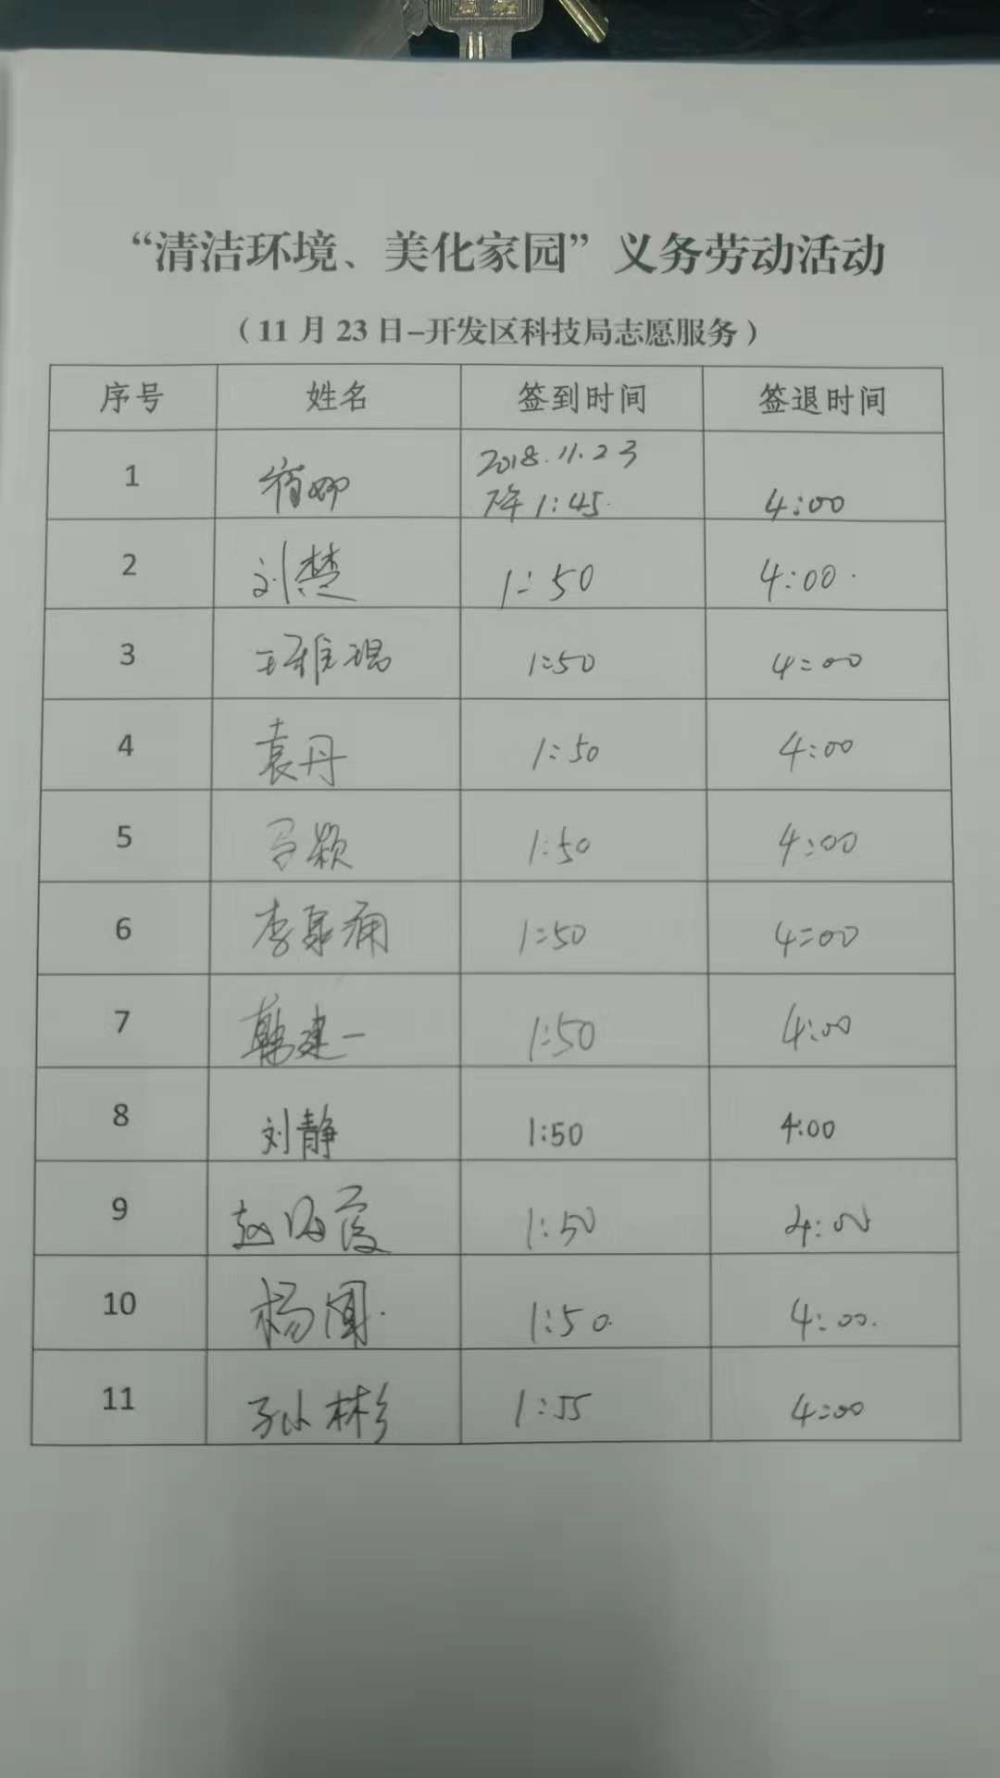 “清洁环境、美化家园”义务劳动活动
（11月23日-开发区科技局志愿服务）
序号 姓名 签到时间 签退时间
1 2018.11.23
下午1:45 4:00
2 刘楚 1:50 4:00
3 1:50 4:00
4 袁丹 1:50 4:00
5 马颖 1:50 4:00
6 李 1:50 4:00
7 韩建一 1:50 4:00
8 刘静 1:50 4:00
9 赵海霞 1:50 4:00
10 杨 1:50 4:00
11 孙小彬 1:55 4:00